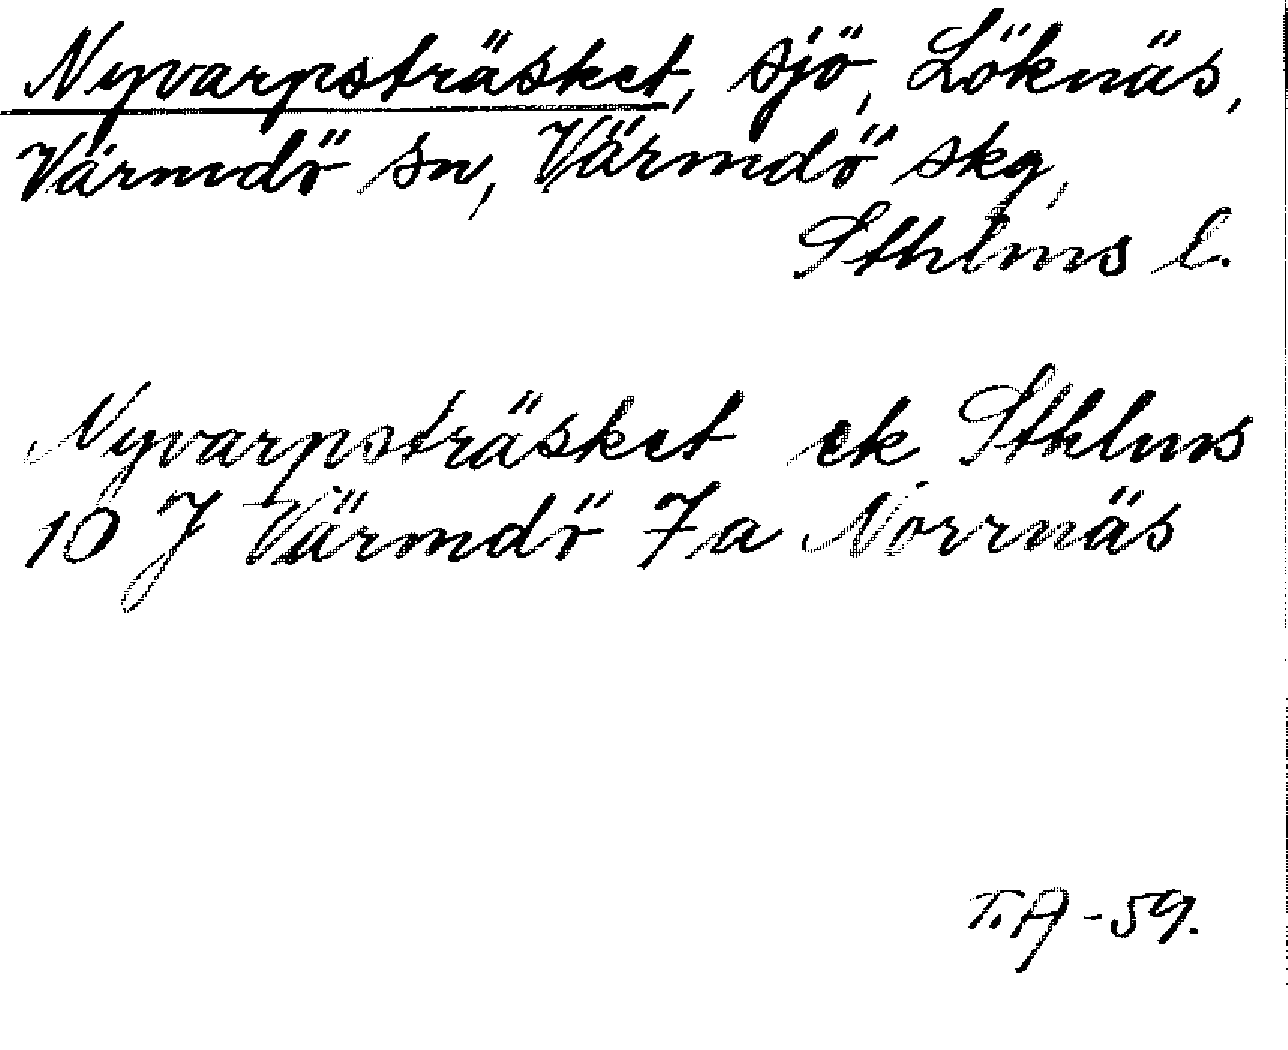 Nyvarpsträsket, sjö, Löknäs,
Värmdö sn, Värmdö skg,
Sthlms l.
Nyvarpsträsket ek Sthlms
10 J Värmdö 7a Norrnäs
T.A-59.